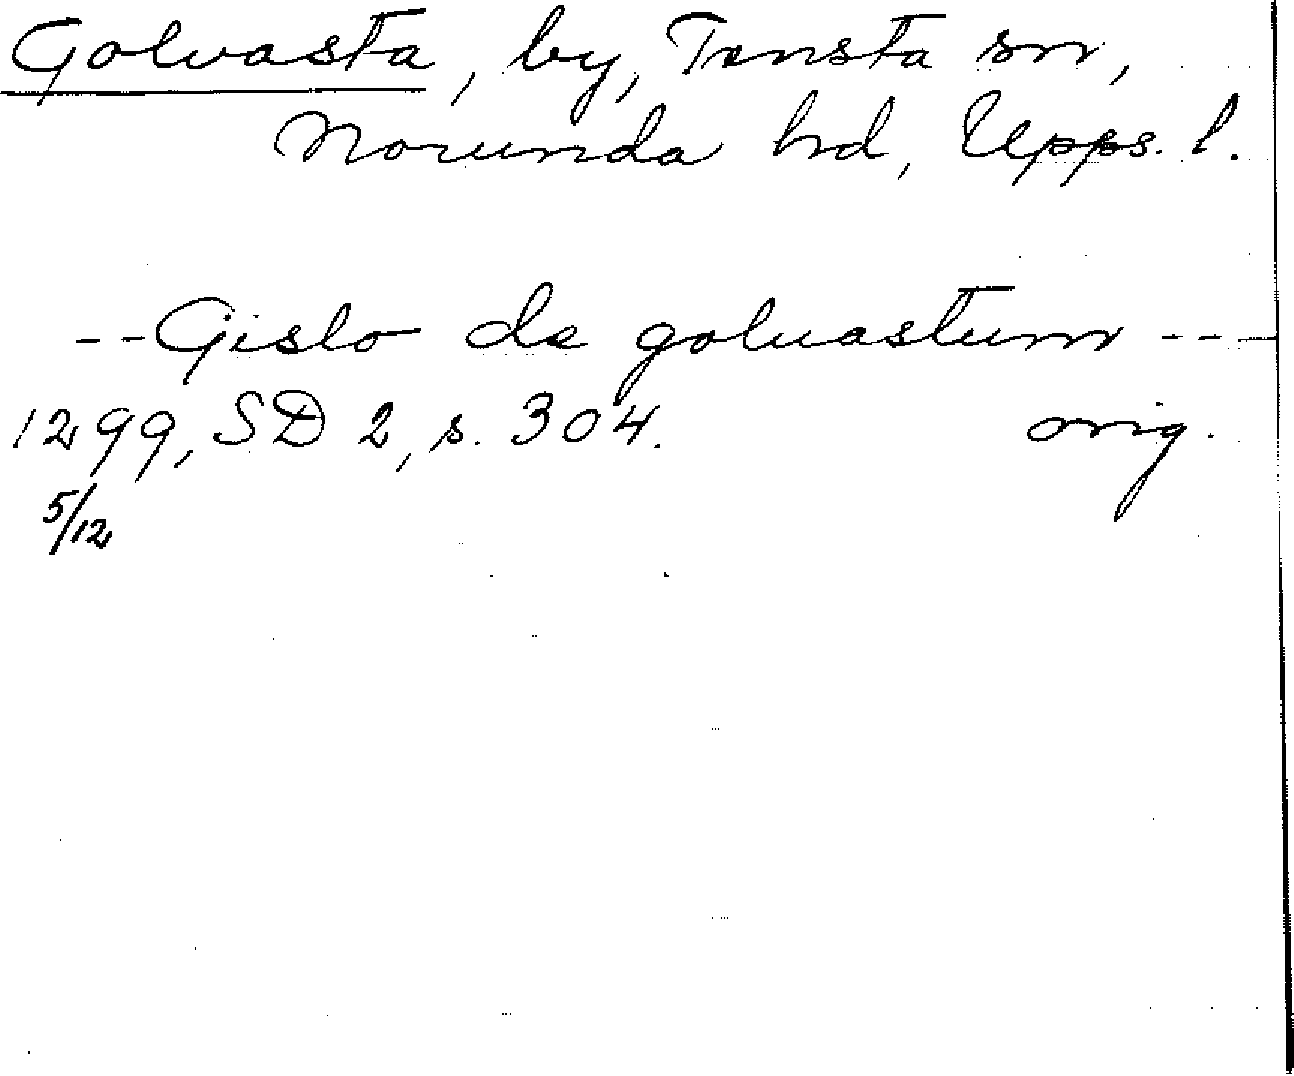 Golvasta, by, Tensta sn,
Norunda hd, Upps. l.
-- Gislo de goluastum ---
1299, SD 2, s. 304. orig.
5/12